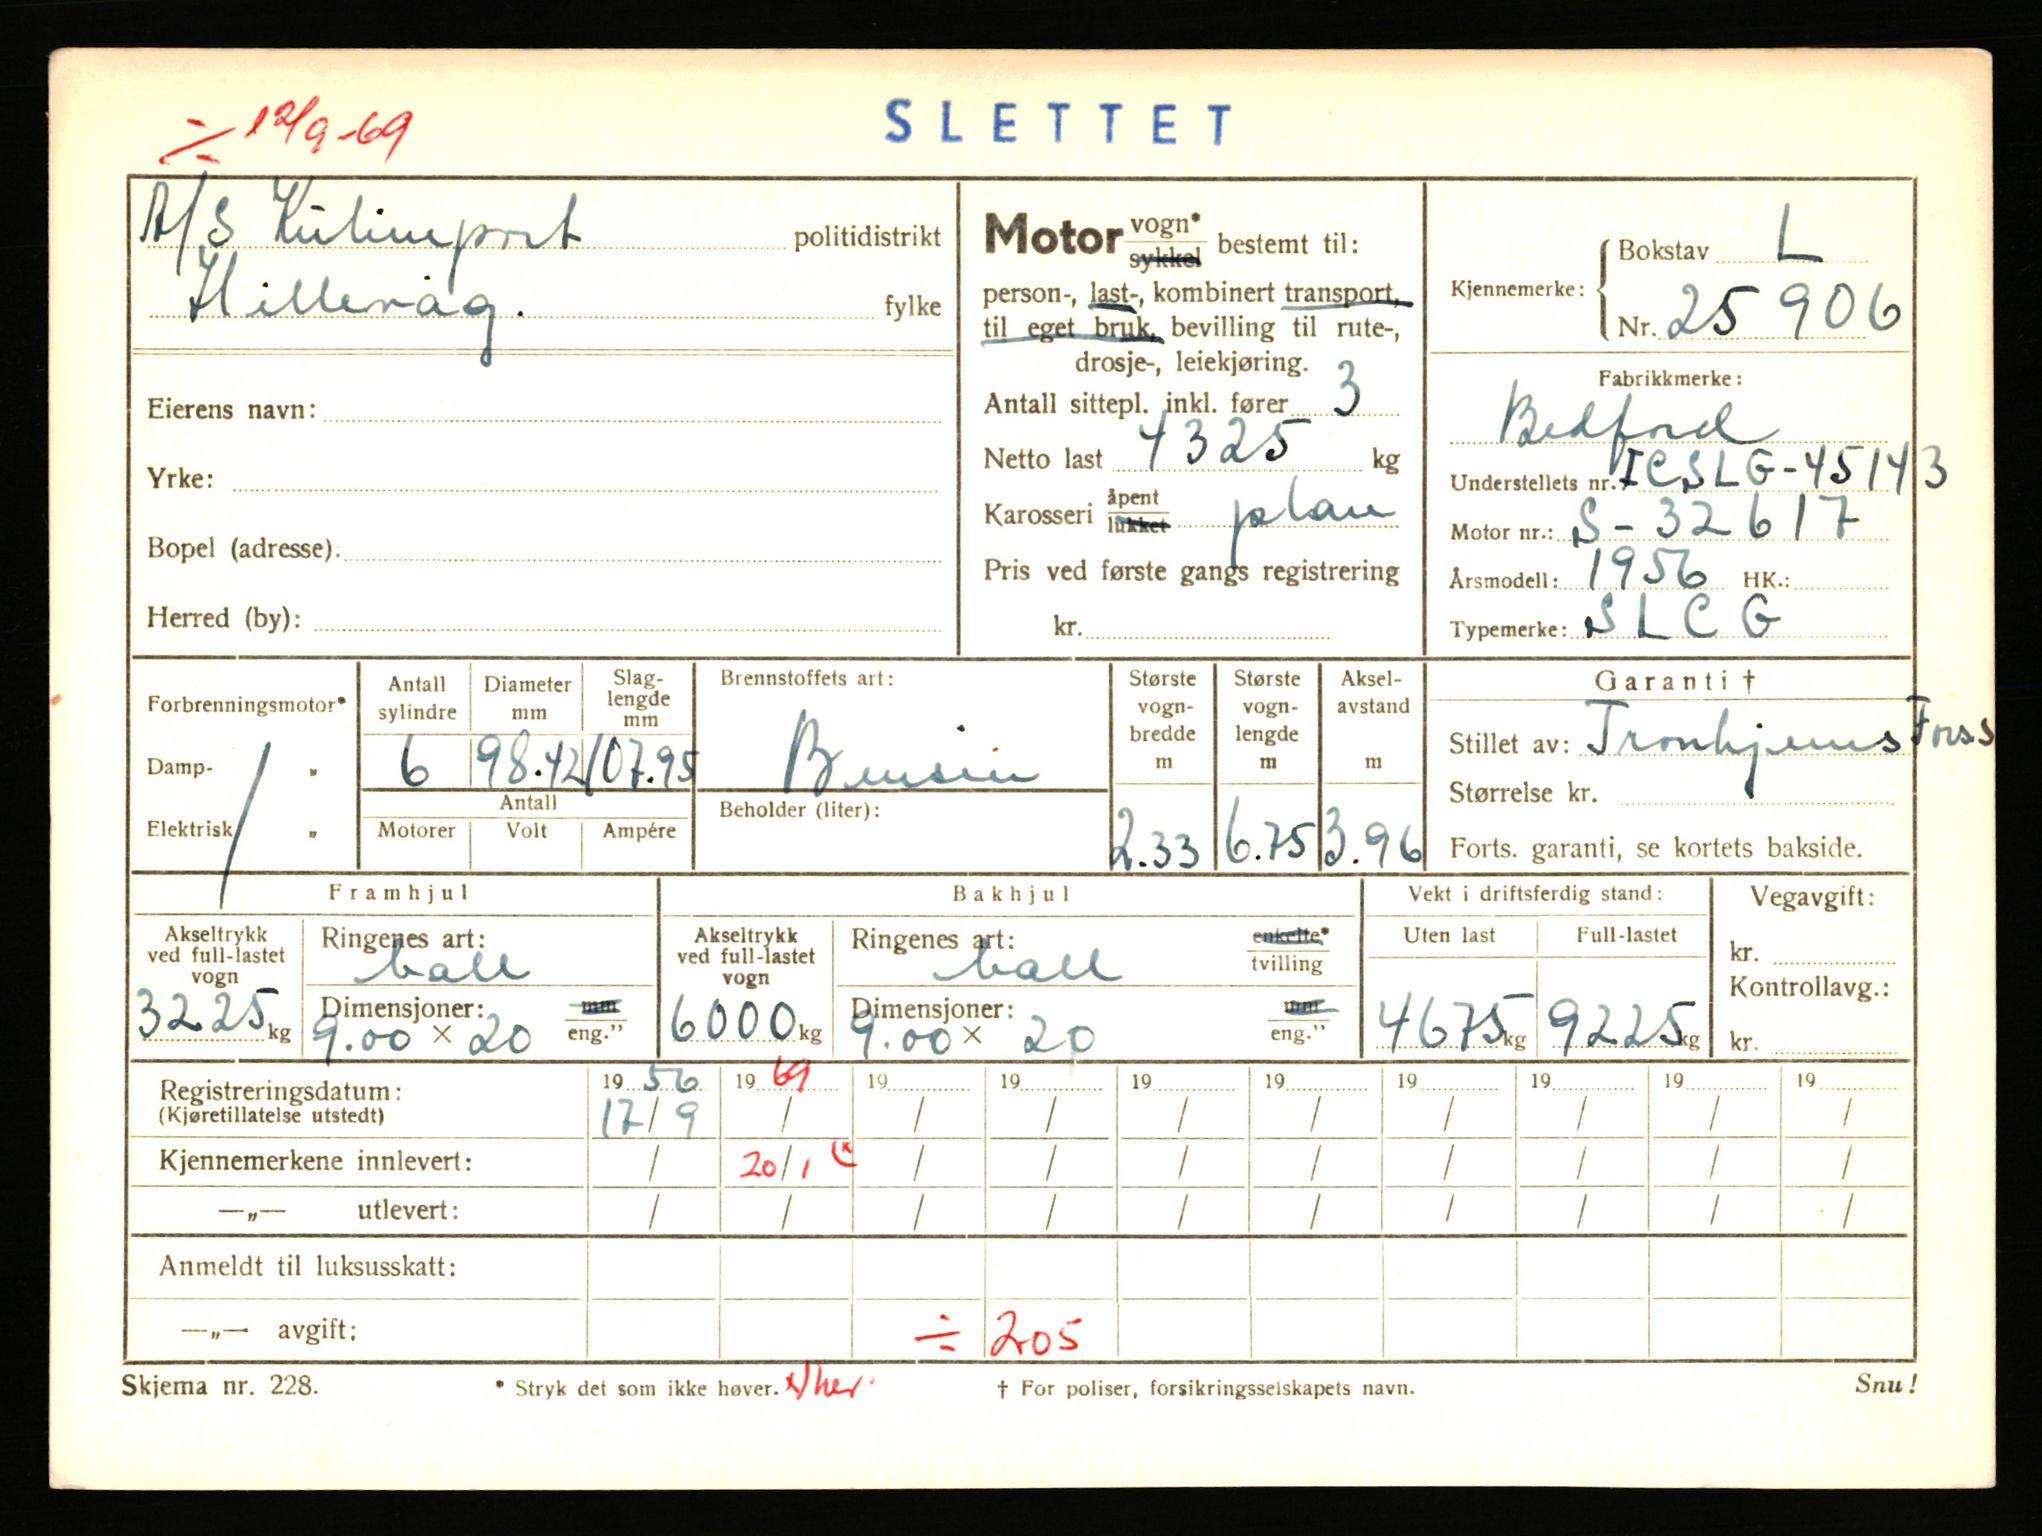 SLETTET
÷ 12/9-69
A/S Kulimport politidistrikt
Hillevåg. fylke
Eierens navn:
Yrke:
Bopel (adresse):
Herred (by):
Motor vogn* sykkel bestemt til:
person-, last-, kombinert transport,
til eget bruk, bevilling til rute-,
drosje-, leiekjøring.
Antall sittepl. inkl. fører 3
Netto last 4325 kg
Karosseri åpent lukket plan
Pris ved første gangs registrering
kr.
Kjennemerke: Bokstav L
Nr. 25906
Fabrikkmerke:
Bedford
Understellets nr.: ICSLG-45143
Motor nr.: S-32617
Årsmodell: 1956 HK.:
Typemerke: SLCG
Forbrenningsmotor*
Damp- „
Elektrisk „
Antall sylindre 6
Diameter mm 98.42
Slag-lengde mm 107.95
Antall
Motorer Volt Ampére
Brennstoffets art:
Bensin
Beholder (liter):
Største vogn-bredde m 2.33
Største vogn-lengde m 6.75
Aksel-avstand m 3.96
Garanti †
Stillet av: Tronhjems Fors.s
Størrelse kr.
Forts. garanti, se kortets bakside.
Framhjul
Akseltrykk ved full-lastet vogn 3225 kg
Ringenes art: ball
Dimensjoner: mm
9.00 × 20 eng.”
Bakhjul
Akseltrykk ved full-lastet vogn 6000 kg
Ringenes art: ball enkelte* tvilling
Dimensjoner: mm
9.00 × 20 eng.”
Vekt i driftsferdig stand:
Uten last Full-lastet
4675 kg 9225 kg
Vegavgift:
kr.
Kontrollavg.:
kr.
Registreringsdatum: 19 56 19 69 19 19 19 19 19 19 19 19
(Kjøretillatelse utstedt) 17/9 / / / / / / / / /
Kjennemerkene innlevert: / 20/1 (x / / / / / / / /
—„— utlevert: / / / / / / / / / /
Anmeldt til luksusskatt:
—„— avgift: ÷ 205
Skjema nr. 228. * Stryk det som ikke høver. x) her. † For poliser, forsikringsselskapets navn. Snu!